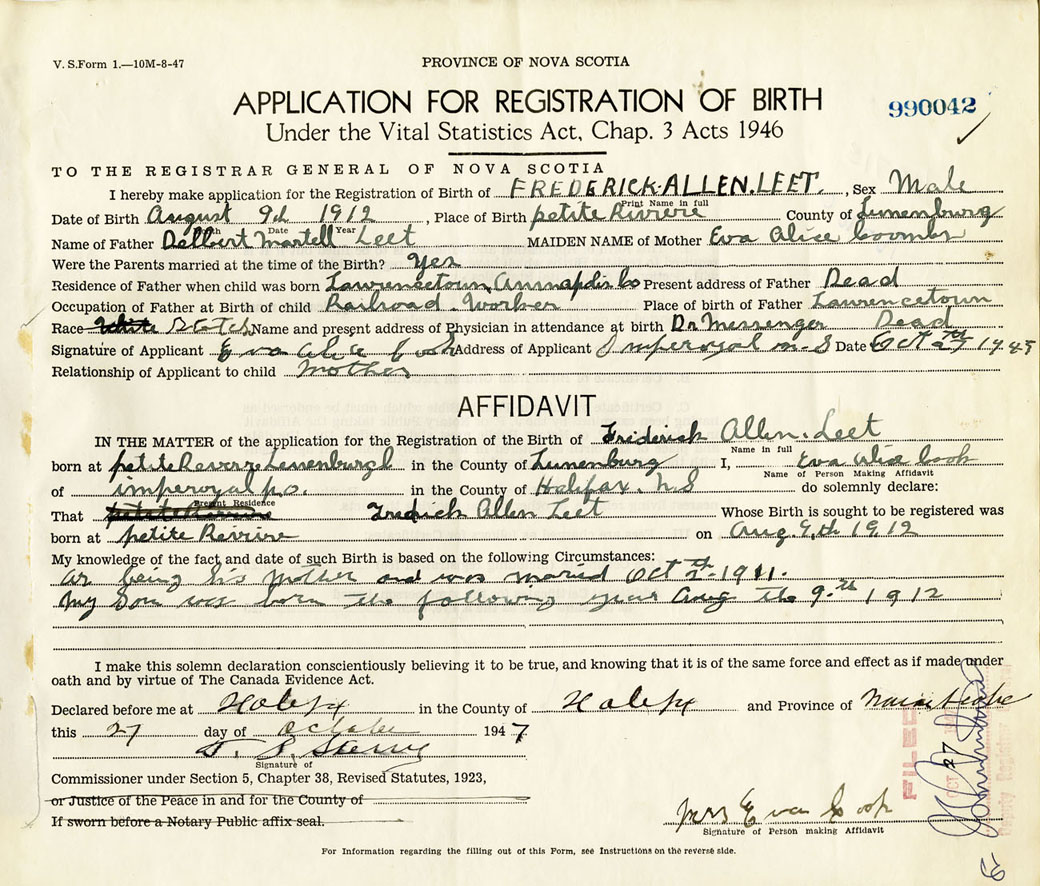 V. S.Form 1.—10M-8-47
PROVINCE OF NOVA SCOTIA
APPLICATION FOR REGISTRATION OF BIRTH
990042
Under the Vital Statistics Act, Chap. 3 Acts 1946
TO THE REGISTRAR GENERAL OF NOVA SCOTIA
I hereby make application for the Registration of Birth of FREDERICK.ALLEN.LEET. , Sex Male
Print Name in full
Date of Birth August 9th 1912 , Place of Birth petite Riviere County of Lunenburg
Date Year
Name of Father Delbert Martell Leet MAIDEN NAME of Mother Eva Alice Coombs
Were the Parents married at the time of the Birth? Yes
Residence of Father when child was born Lawrencetown, Annapolis Co Present address of Father Dead
Occupation of Father at Birth of child Railroad. Worker Place of birth of Father Lawrencetown
Race White Scotch Name and present address of Physician in attendance at birth Dr Messenger Dead
Signature of Applicant Eva Alice Cook Address of Applicant Imperoyal N.S Date Oct 27th 1947
Relationship of Applicant to child Mother
AFFIDAVIT
IN THE MATTER of the application for the Registration of the Birth of Friderick Allen. Leet
Name in full
born at petite Reverze Lenenburgh in the County of Lunenburg I, Eva Alice Cook
Name of Person Making Affidavit
of imperoyal p.o. in the County of Halifax. N.S do solemnly declare:
Present Residence
That Fredrick Allen Leet Whose Birth is sought to be registered was
born at petite Revrire on Aug. 9,th 1912
My knowledge of the fact and date of such Birth is based on the following Circumstances:
as being his Mother and was maried Oct 2th-1911.
My Son was born the following year Aug the 9.th 1912
I make this solemn declaration conscientiously believing it to be true, and knowing that it is of the same force and effect as if made under
oath and by virtue of The Canada Evidence Act.
Declared before me at Halifx in the County of Halifx and Province of Nova Scotia
this 27 day of October 1947
Signature of
Commissioner under Section 5, Chapter 38, Revised Statutes, 1923,
or Justice of the Peace in and for the County of
If sworn before a Notary Public affix seal.
Mrs Eva Cook
Signature of Person making Affidavit
FILED
OCT 27
Deputy Registrar General
For Information regarding the filling out of this Form, see Instructions on the reverse side.